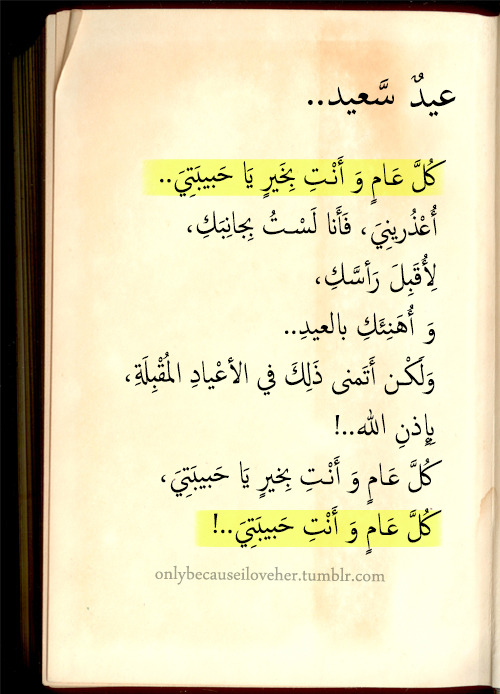 عيدٌ سَّعيد..
كُلَّ عَامٍ وَ أَنْتِ بِخَيرٍ يَا حَبيبَتِيَ..
أُعْذُرينِيَ، فَأَنا لَسْتُ بِجانِبَكِ،
لِأُقَبِلَ رَأسَّكِ،
وَ أُهَنِئَكِ بالعيدِ..
وَلَكْن أَتَمنى ذَلِكَ في الأعْيادِ المُقْبِلَةِ،
بِإذنِ الله..!
كُلَّ عَامٍ وَ أَنْتِ بِخيرٍ يَا حَبيبَتِيَ،
كُلَّ عَامٍ وَ أَنْتِ حَبيبَتِيَ..!
onlybecauseiloveher.tumblr.com